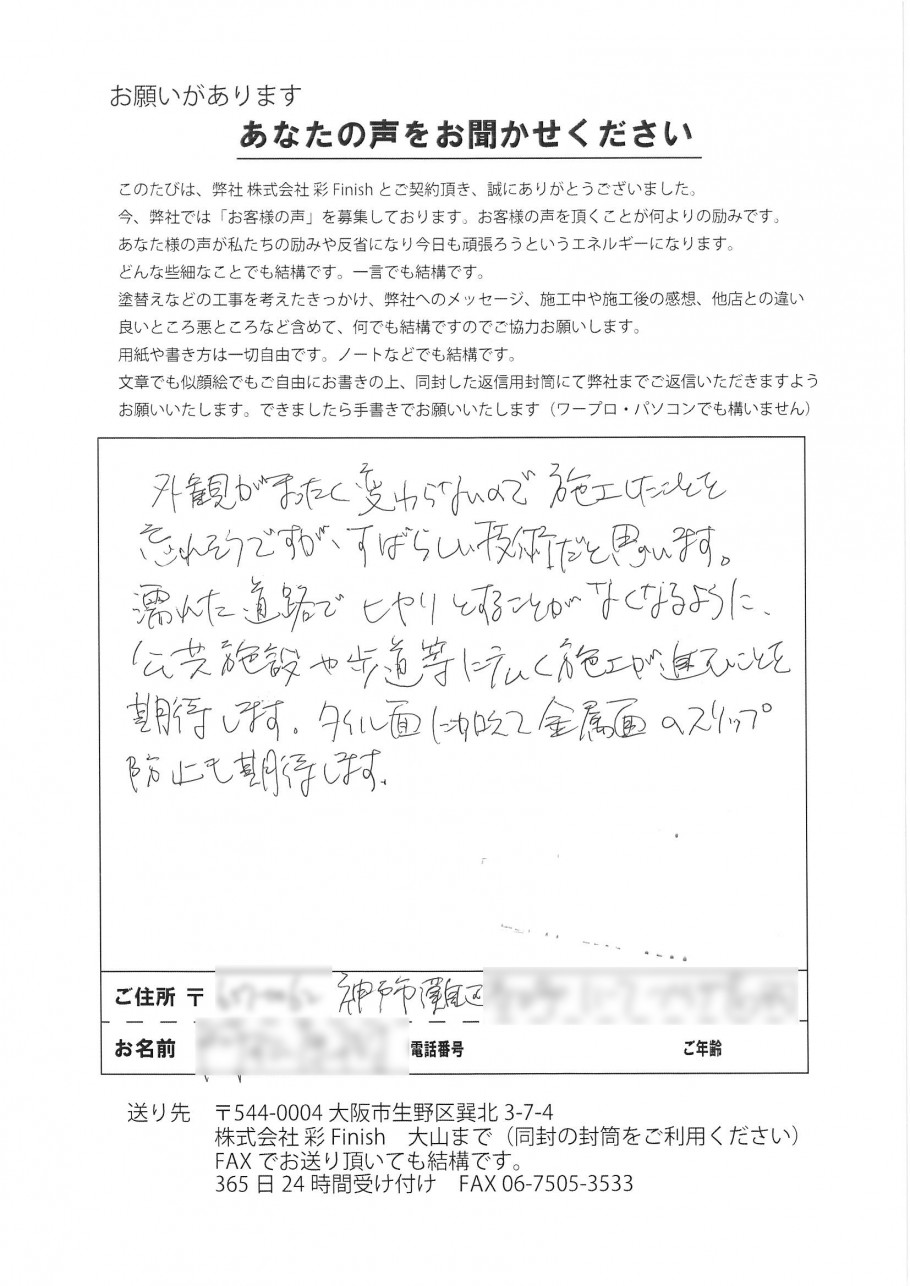 お願いがあります
あなたの声をお聞かせください
このたびは、弊社 株式会社 彩 Finish とご契約頂き、誠にありがとうございました。
今、弊社では「お客様の声」を募集しております。お客様の声を頂くことが何よりの励みです。
あなた様の声が私たちの励みや反省になり今日も頑張ろうというエネルギーになります。
どんな些細なことでも結構です。一言でも結構です。
塗替えなどの工事を考えたきっかけ、弊社へのメッセージ、施工中や施工後の感想、他店との違い
良いところ悪ところなど含めて、何でも結構ですのでご協力お願いします。
用紙や書き方は一切自由です。ノートなどでも結構です。
文章でも似顔絵でもご自由にお書きの上、同封した返信用封筒にて弊社までご返信いただきますよう
お願いいたします。できましたら手書きでお願いいたします（ワープロ・パソコンでも構いません）
外観がまったく変わらないので施工したことを
忘れそうですが、すばらしい技術だと思います。
濡れた道路でヒヤリとすることがなくなるように、
公共施設や歩道等に広く施工が進むことを
期待します。タイル面に加えて金属面のスリップ
防止も期待します。
ご住所 〒 神戸市灘区
お名前 電話番号 ご年齢
送り先 〒544-0004 大阪市生野区巽北 3-7-4
株式会社 彩 Finish 大山まで（同封の封筒をご利用ください）
FAX でお送り頂いても結構です。
365 日 24 時間受け付け FAX 06-7505-3533